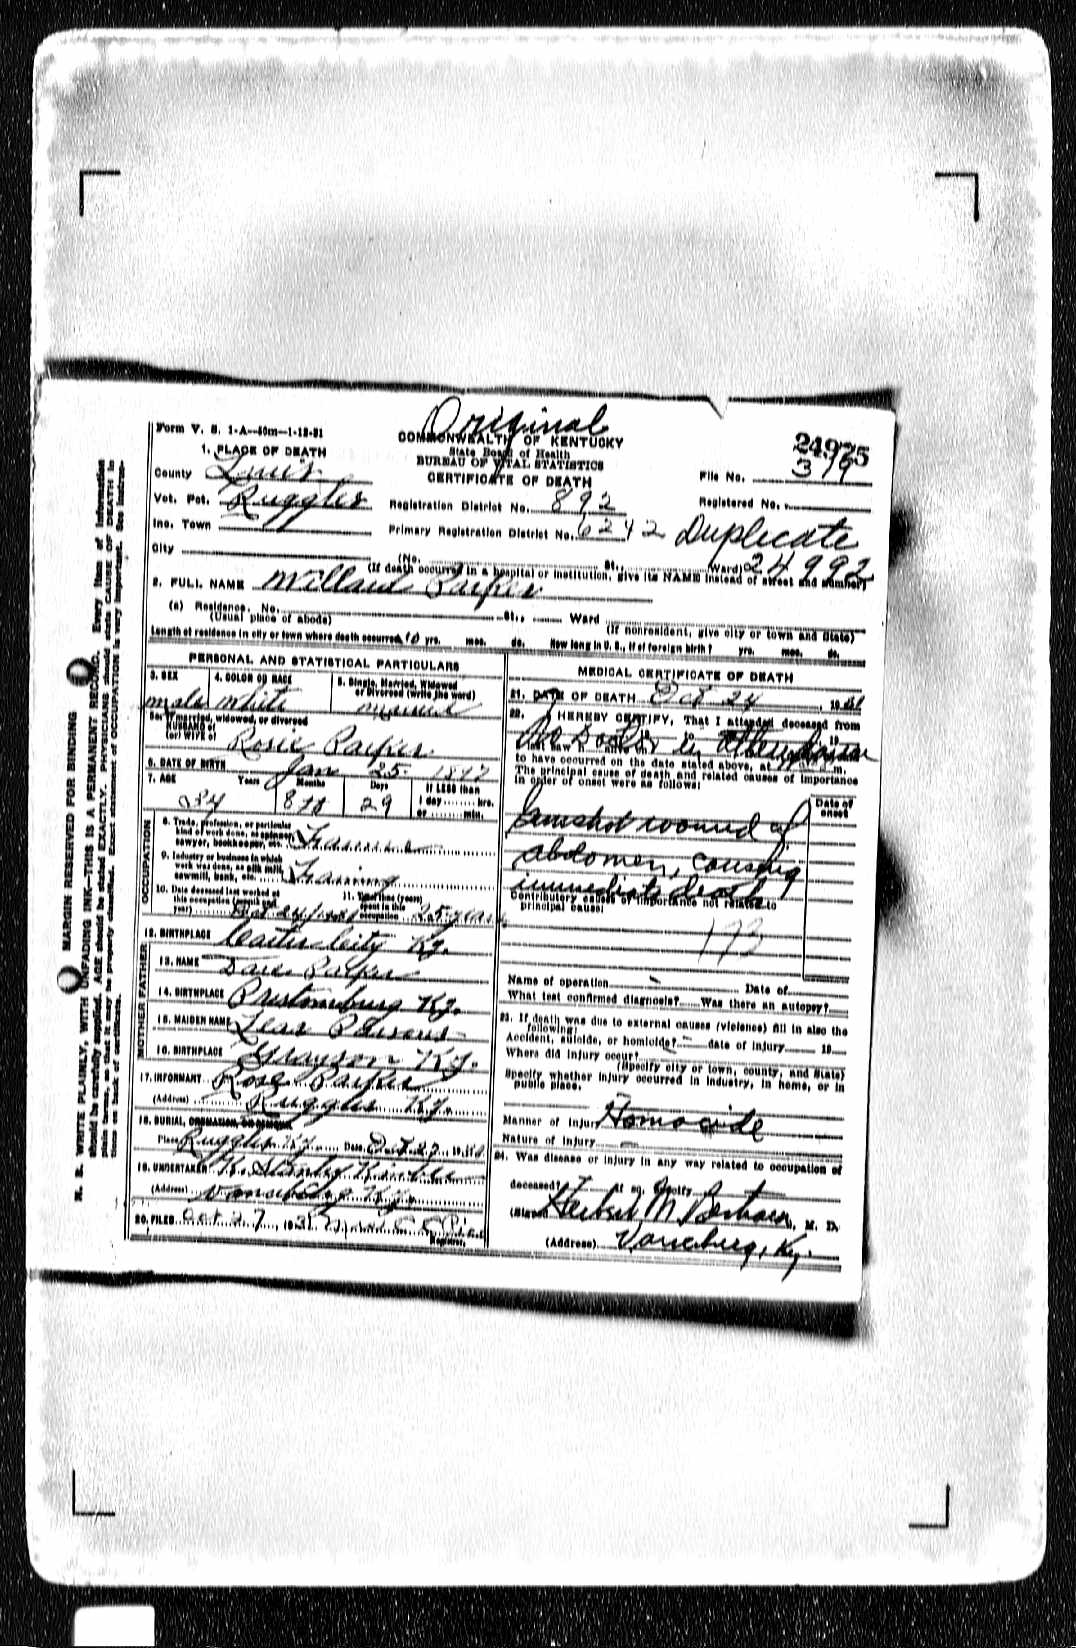 Original
Form V. S. 1-A--50m-1-12-31
COMMONWEALTH OF KENTUCKY
State Board of Health
BUREAU OF VITAL STATISTICS
CERTIFICATE OF DEATH
24975
File No. 379
1. PLACE OF DEATH
County Lewis
Vot. Pct. Ruggles
Registration District No. 892
Registered No.
Inc. Town
Primary Registration District No. 6242
Duplicate
24992
City
(No. St., Ward)
(If death occurred in a hospital or institution, give its NAME instead of street and number)
2. FULL NAME Willard Parker
(a) Residence. No. St., Ward
(Usual place of abode)
(If nonresident, give city or town and State)
Length of residence in city or town where death occurred 10 yrs. mos. ds. How long in U. S., if of foreign birth? yrs. mos. ds.
PERSONAL AND STATISTICAL PARTICULARS
3. SEX
male
4. COLOR OR RACE
White
5. Single, Married, Widowed
or Divorced (write the word)
married
5a. If married, widowed, or divorced
HUSBAND of
(or) WIFE of Rosie Parker
6. DATE OF BIRTH Jan 25 1897
7. AGE Years Months Days If LESS than
34 8 29 1 day hrs.
or min.
OCCUPATION
8. Trade, profession, or particular
kind of work done, as spinner,
sawyer, bookkeeper, etc.
9. Industry or business in which
work was done, as silk mill,
sawmill, bank, etc. Faming
10. Date deceased last worked at
this occupation (month and
year)
11. Total time (years)
spent in this
occupation 25 years
12. BIRTHPLACE Carter City Ky.
FATHER
13. NAME Dave Parker
14. BIRTHPLACE Prestonsburg Ky.
MOTHER
15. MAIDEN NAME Lear Parsons
16. BIRTHPLACE Grayson Ky.
17. INFORMANT Rose Parker
(Address) Ruggles Ky.
18. BURIAL, CREMATION, OR REMOVAL
Place Ruggles Ky Date Oct 27, 19
19. UNDERTAKER Stanley
(Address) Vanceburg Ky.
20. FILED Oct 27, 1931
Registrar.
MEDICAL CERTIFICATE OF DEATH
21. DATE OF DEATH Oct 24, 1931
22. I HEREBY CERTIFY, That I attended deceased from
No Doctor in attendance
to have occurred on the date stated above, at m.
The principal cause of death and related causes of importance
in order of onset were as follows:
Date of
onset
Gunshot wound of
abdomen, causing
immediate death
Contributory causes of importance not related to
principal cause:
173
Name of operation Date of
What test confirmed diagnosis? Was there an autopsy?
23. If death was due to external causes (violence) fill in also the
following:
Accident, suicide, or homicide? date of injury 19
Where did injury occur?
(Specify city or town, county, and State)
Specify whether injury occurred in industry, in home, or in
public place.
Manner of injury Homocide
Nature of injury
24. Was disease or injury in any way related to occupation of
deceased? If so, specify
(Signed) Herbert M Bertram, M. D.
(Address) Vanceburg, Ky.
MARGIN RESERVED FOR BINDING
N. B. WRITE PLAINLY, WITH UNFADING INK--THIS IS A PERMANENT RECORD. Every item of information
should be carefully supplied. AGE should be stated EXACTLY. PHYSICIANS should state CAUSE OF DEATH in
plain terms, so that it may be properly classified. Exact statement of OCCUPATION is very important. See instruc-
tions on back of certificate.